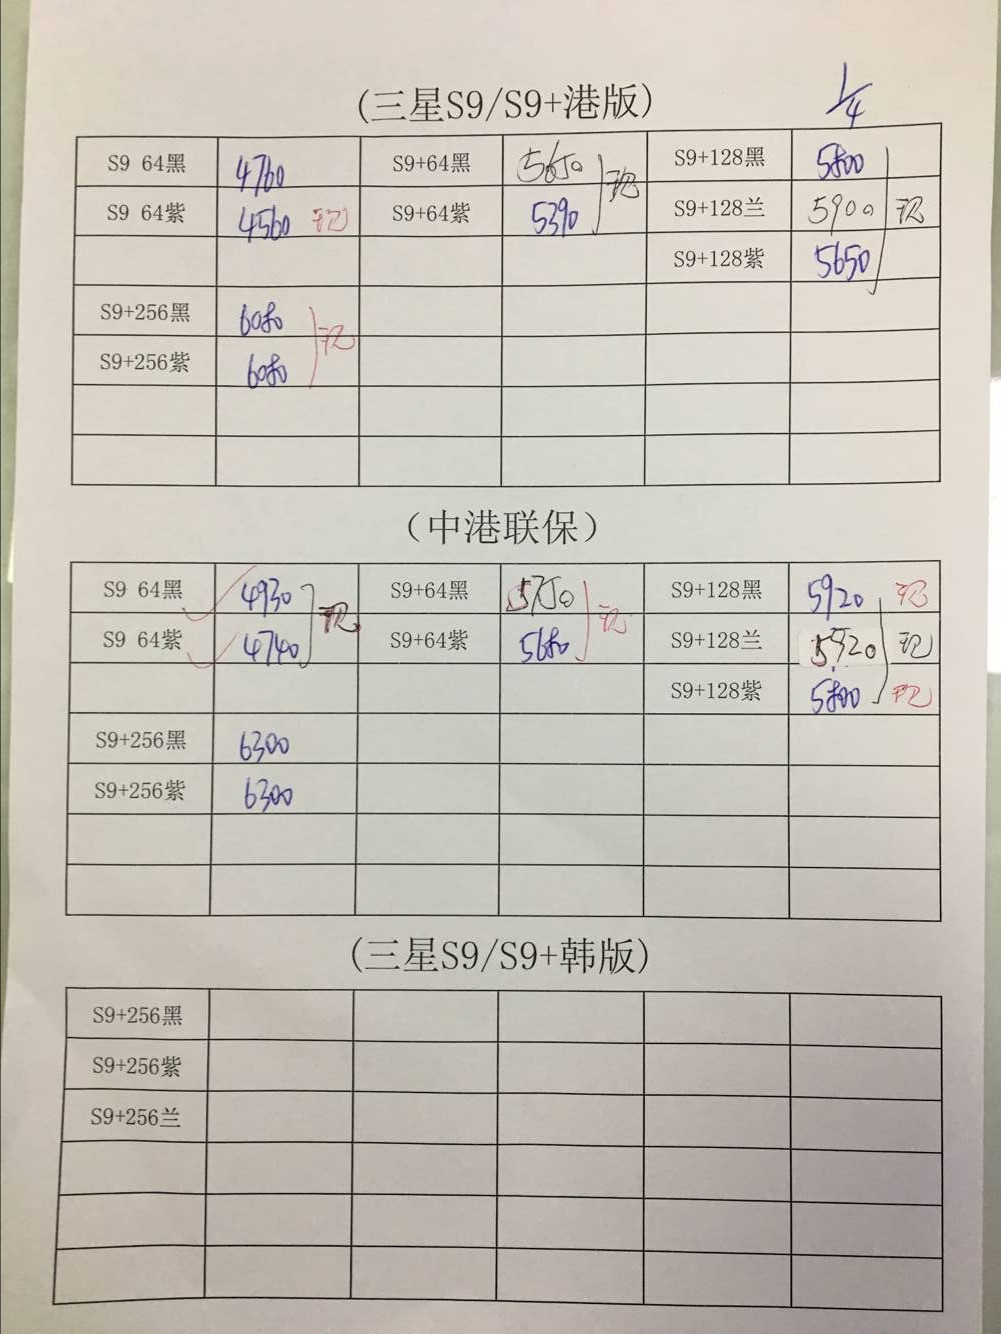 (三星S9/S9+港版)
1/4
S9 64黑 4760 S9+64黑 5650 S9+128黑 5800
S9 64紫 4560 现 S9+64紫 5390 现 S9+128兰 5900 现
S9+128紫 5650
S9+256黑 6080
现
S9+256紫 6080
(中港联保)
S9 64黑 4930 现 S9+64黑 5750 现 S9+128黑 5920 现
S9 64紫 4740 S9+64紫 5680 S9+128兰 5920 现
S9+128紫 5800 现
S9+256黑 6300
S9+256紫 6300
(三星S9/S9+韩版)
S9+256黑
S9+256紫
S9+256兰